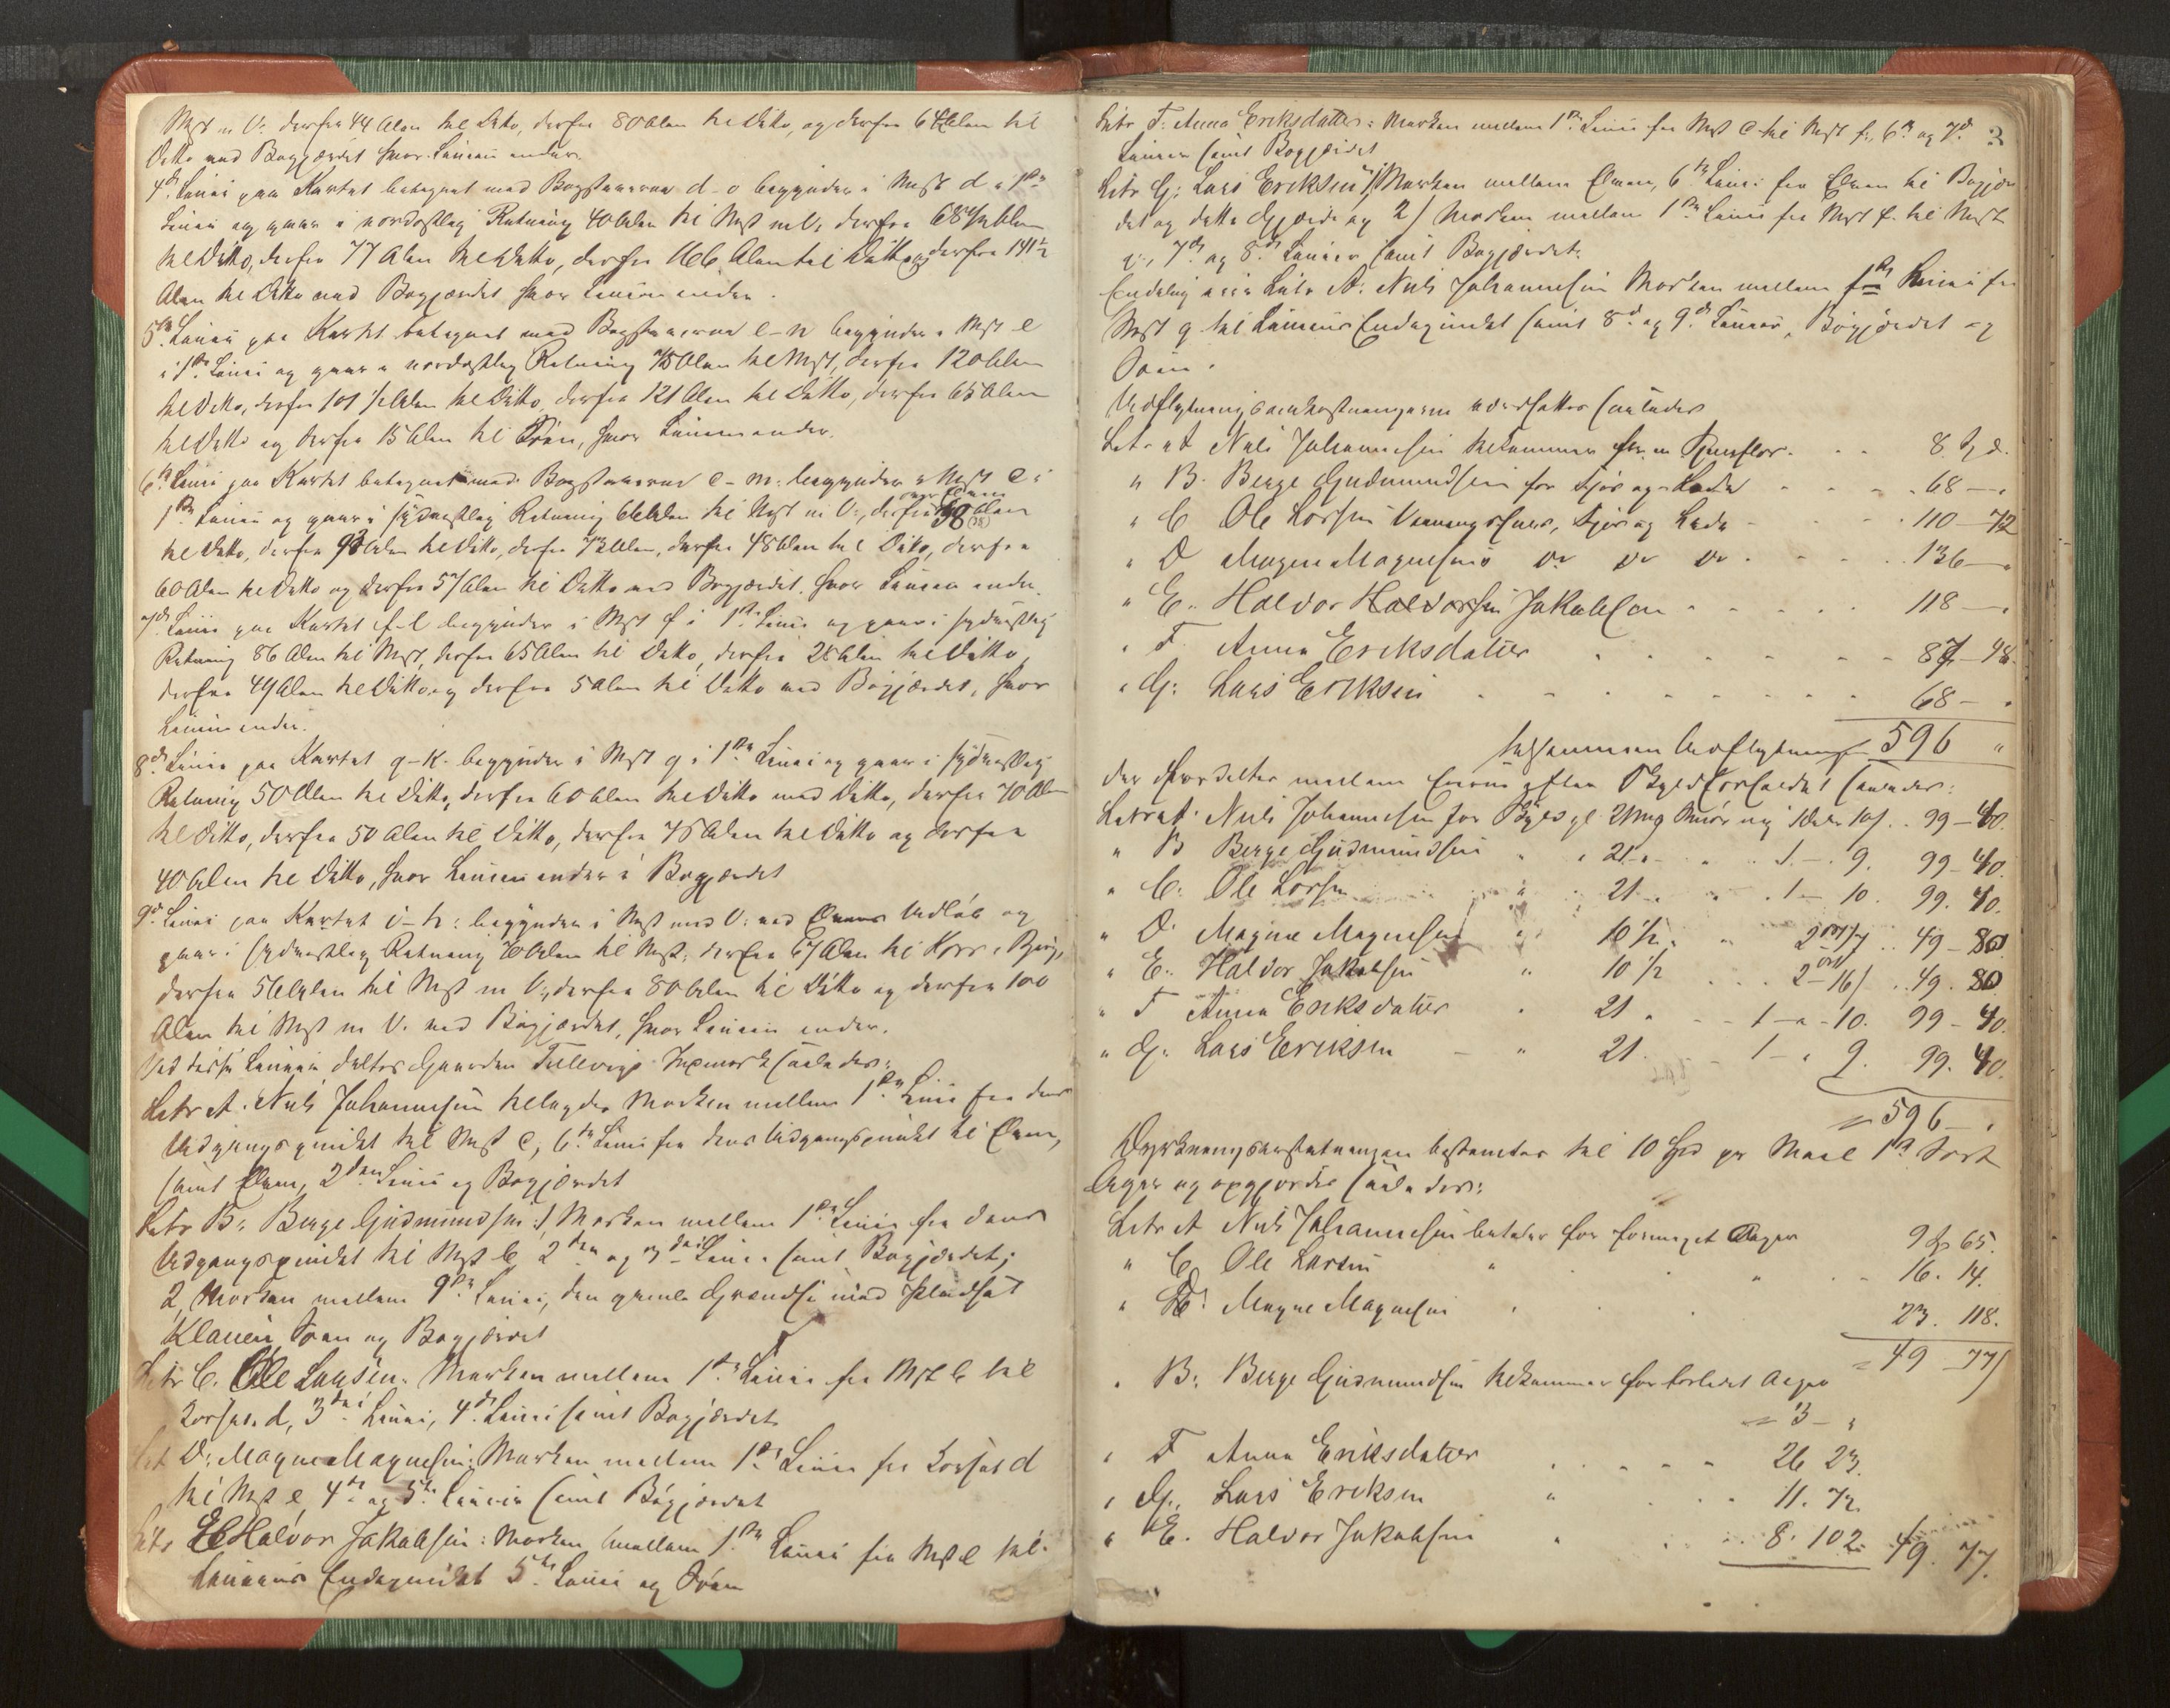 Mst m V: derfra 44 Alen til Ditto, derfra 80 Alen til Ditto, og derfra 64 Alen til
Ditto ved Bøgjærdet hvor Linien ender.
4de Linie paa Kartet betegnet med Bogstaverne d-o begynder i Mst d i 1ste
Linie og gaar i nordostlig Retning 40 Alen til Mst m V: derfra 68 1/2 Alen
til Ditto, derfra 77 Alen til Ditto, derfra 166 Alen til Ditto og derfra 191 1/2
Alen til Ditto ved Bøgjærdet hvor Linien ender.
5te Linie paa Kartet betegnet med Bogstaverne e-n begynder i Mst e
i 1ste Linie og gaar i nordostlig Retning Alen til Mst, derfra 120 Alen
til Ditto, derfra 101 1/2 Alen til Ditto, derfra 121 Alen til Ditto, derfra 65 Alen
til Ditto og derfra 15 Alen til Søen, hvor Linien ender.
6te Linie paa Kartet betegnet med Bogstaverne c-m: begynder i Mst c i
1ste Linie og gaar i sydvestlig Retning Alen til Mst m V:, derfra over Elven 38 (38) Alen
til Ditto, derfra 93 Alen til Ditto, derfra 73 Alen, derfra 48 Alen til Ditto, derfra
60 Alen til Ditto og derfra 57 Alen til Ditto ved Bøgjærdet. hvor Linien ender.
7de Linie paa Kartet f-l begynder i Mst f i 1ste Linie og gaar i sydvestlig
Retning 86 Alen til Mst, derfra 65 Alen til Ditto, derfra 28 Alen til Ditto,
derfra 49 Alen til Ditto og derfra 5 Alen til Ditto ved Bøgjærdet, hvor
Linien ender.
8de Linie paa Kartet g-k. begynder i Mst g i 1ste Linie og gaar i sydvestlig
Retning 50 Alen til Ditto, derfra 60 Alen til Ditto med Ditto, derfra 70 Alen
til Ditto, derfra 50 Alen til Ditto, derfra 75 Alen til Ditto og derfra
40 Alen til Ditto, hvor Linien ender i Bøgjærdet
9de Linie paa Kartet i-h: begynder i Mst med V: ved Elvens Udløb og
gaar i sydvestlig Retning 70 Alen til Mst, derfra 67 Alen til Kors i Bjerg,
derfra 56 Alen til Mst m V., derfra 80 Alen til Ditto og derfra 100
Alen til Mst m V. ved Bøgjærdet, hvor Linien ender.
Ved disse Linier deltes Gaarden Tellevigs Indmark saaledes:
Litr A. Nils Johannesen tillagdes Marken mellem 1ste Linie fra dens
Udgangspunkt til Mst c, 6te Linie fra dens Udgangspunkt til Elven,
samt Elven, 2den Linie og Bøgjærdet
Litr B: Berge Gudmundsen: 1 Marken mellem 1ste Linie fra dens
Udgangspunkt til Mst b, 2den og 3die Linie samt Bøgjærdet;
2, Marken mellem 9de Linie, den gamle Grændse mod Pladset
Klauen, Søen og Bøgjærdet
Litr C. Ole Larsen. Marken mellem 1ste Linie fra Mst b til
Korset d, 3die Linie, 4de Linie samt Bøgjærdet
Litr D: Magne Magnesen: Marken mellem 1ste Linie fra Korset d
til Mst e, 4de og 5te Linie samt Bøgjærdet
Litr E Halvor Jakobsen: Marken mellem 1ste Linie fra Mst e til
Liniens Endepunkt 5te Linie og Søen
3
Litr F. Anna Eriksdatter: Marken mellem 1ste Linie fra Mst c til Mst f, 6te og 7de
Linier samt Bøgjærdet
Litr G: Lars Eriksen 1) Marken mellem Elven, 6te Linie fra Elven til Bøgjær
det og dette Gjærde og 2) Marken mellem 1ste Linie fra Mst f til Mst
g, 7de og 8de Linier samt Bøgjærdet.
Endelig Litr A: Nils Johannesen Marken mellem 1ste Linie fra
Mst g til Liniens Endepunkt samt 8de og 9de Linier, Bøgjærdet og
Søen.
Udflytningsomkostningerne ansattes saaledes
Litr A Nils Johannesen tilkommer for - - 8 Spd.
" B. Berge Gudmundsen for Fjøs og Lade - - 68 — "
" C Ole Larsen Vaaningshuus, Fjøs og Lade - - 110 — 72
" D Magne Magnesen do do do - - 136 — "
" E. Halvor Halvorsen Jakobsen - - 118 — "
" F. Anna Eriksdatter - - 87 — 48.
" G: Lars Eriksen - - 68 — "
tilsammen Udflytning 596 "
der fordeltes mellem Eierne efter Skyldforholdet saaledes:
Litr A. Nils Johannesen for 21 mg Smør ny 1 Daler 10 s. 99 — 40.
" B Berge Gudmundsen " 21 " 1 — 9. 99 — 40.
" C. Ole Larsen " 21 " 1 — 10. 99. 40.
" D. Magne Magnesen " 10 1/2 " 2 ort 17 49 — 80
" E. Halvor Jakobsen " 10 1/2 2 ort 16 49. 80
" F Anna Eriksdatter " 21 " 1 — " 10. 99 — 40.
" G. Lars Eriksen — " 21 — 1 — " 9. 99. 40.
= 596 — "
Dyrkningserstatningen bestemtes til 10 Spd pr Maal 1ste Sort
Ager og opgjordes saaledes:
Litr A Nils Johannesen betaler for forøget Ager 9 Sp 65.
" C, Ole Larsen " " 16. 14.
" D: Magne Magnesen 23. 118.
= 49 — 77
" B: Berge Gudmundsen tilkommer for forledet Ager
= 3 — "
" F Anna Eriksdatter 26 23.
" G. Lars Eriksen " 11. 72.
" E. Halvor Jakobsen " 8. 102 49. 77.